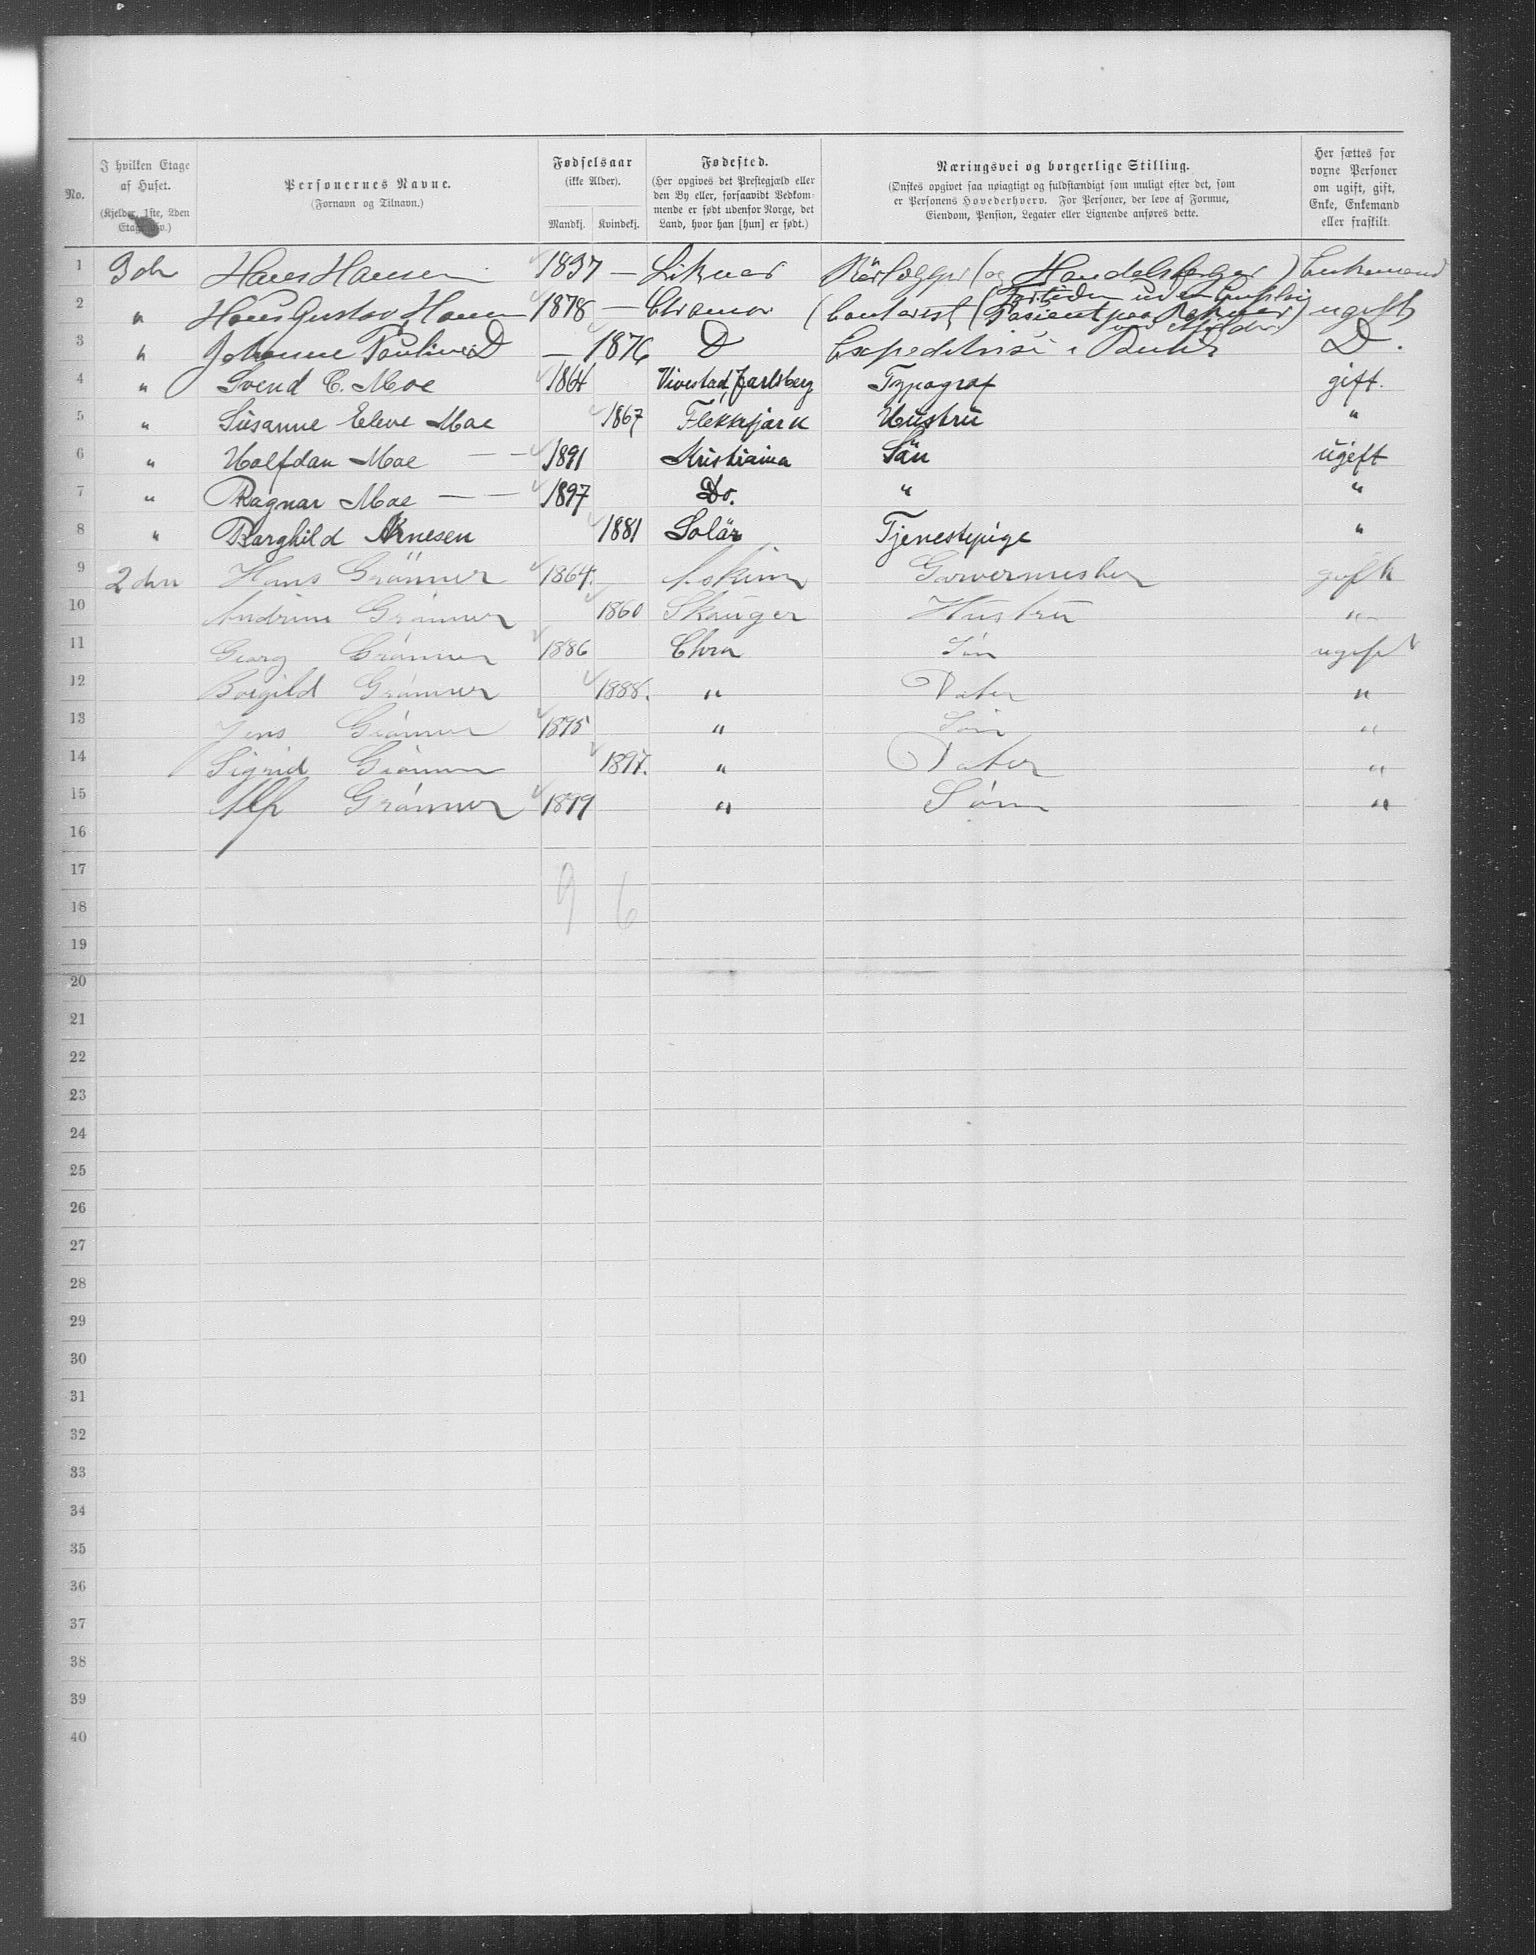 No.
I hvilken Etage af Huset.
(Kjelder, 1ste, 2den Etage osv.)
Personernes Navne.
(Fornavn og Tilnavn.)
Fødselsaar
(ikke Alder).
Mandkj. Kvindekj.
Fødested.
(Her opgives det Prestegjæld eller den By eller, forsaavidt Vedkommende er født udenfor Norge, det Land, hvor han [hun] er født.)
Næringsvei og borgerlige Stilling.
(Ønskes opgivet saa nøiagtigt og fuldstændigt som muligt efter det, som er Personens Hovederhverv. For Personer, der leve af Formue, Eiendom, Pension, Legater eller Lignende anføres dette.
Her sættes for voxne Personer om ugift, gift, Enke, Enkemand eller fraskilt.
1 3die Hans Hansen 1837 — Rörlægger (og Handelsborger) Enkemand
2 " Hans Gustav Hansen 1878 — (Contorist ugift
3 " Johanne Pauline D — 1876 D Expeditrise i D.
4 " Svend C. Moe 1864 Vivestad, Jarlsberg Typograf gift.
5 " Susanne Eleve Moe 1867 Flekkefjord Hustru "
6 " Halfdan Moe — — 1891 Kristiania Sön ugift
7 " Ragnar Moe — — 1897 Do. " "
8 " Borghild Arnesen 1881 Solör Tjenestepige "
9 2den Hans Grönner 1864. Askim Garvermester gift
10 Andrine Grönner 1860 Skauger Hustru "
11 Georg Grönner 1886 Chra Sön ugift
12 Borgild Grönner 1888. " Dater "
13 Jens Grönner 1895 " Sön "
14 Sigrid Grönner 1897. " Dater "
15 Alf Grönner 1899 " Sön "
16
17
9 6
18
19
20
21
22
23
24
25
26
27
28
29
30
31
32
33
34
35
36
37
38
39
40